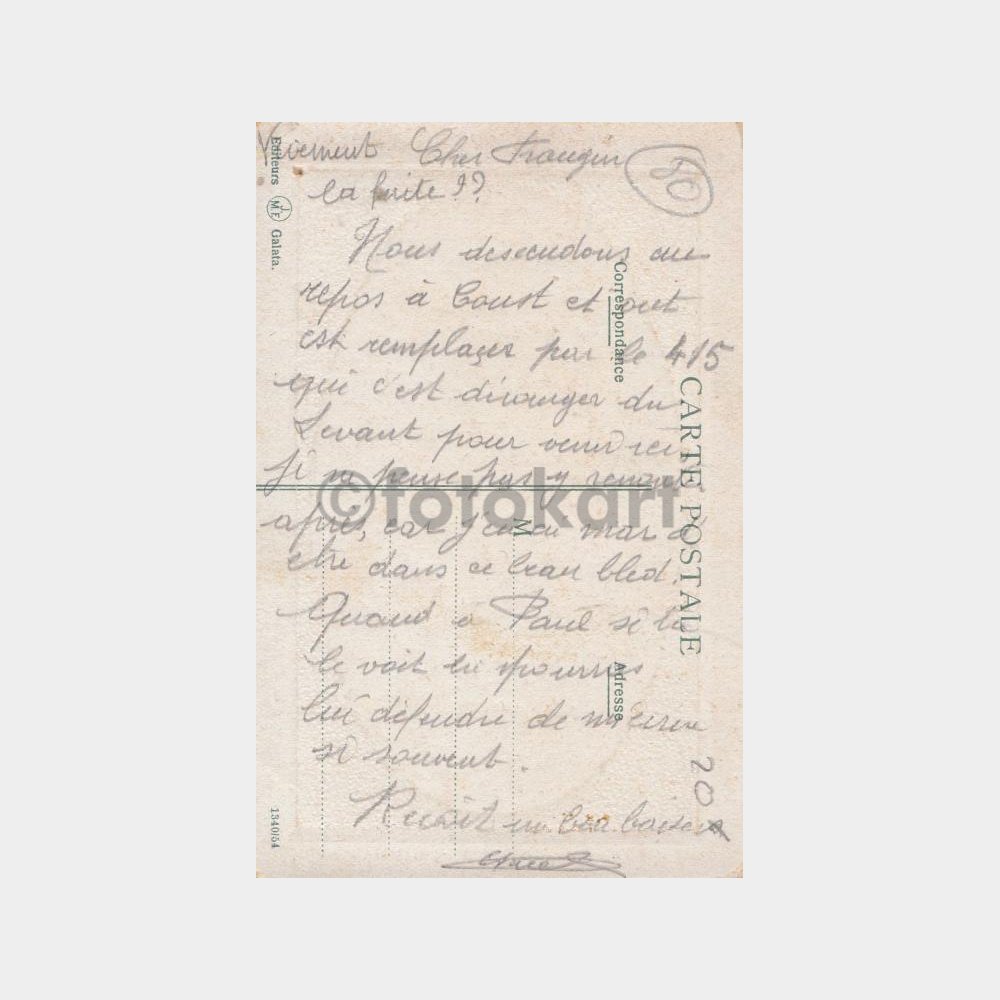 Vivement Cher Frangin
la fuite ??
50
Nous descendons au
repos à Const et
est remplaçer par le 415
qui c'est déranger du
Levant pour venir ici
Je ne pense pas y
après, car j'en ai mar d'
etre dans ce beau bled.
Quand à Paul si tu
le voit tu pourras
lui défendre de m'écrire
si souvent.
Reçoit un bon baiser
20
Editeurs MJF Galata.
1340/54
Correspondance
CARTE POSTALE
M
Adresse
©fotokart